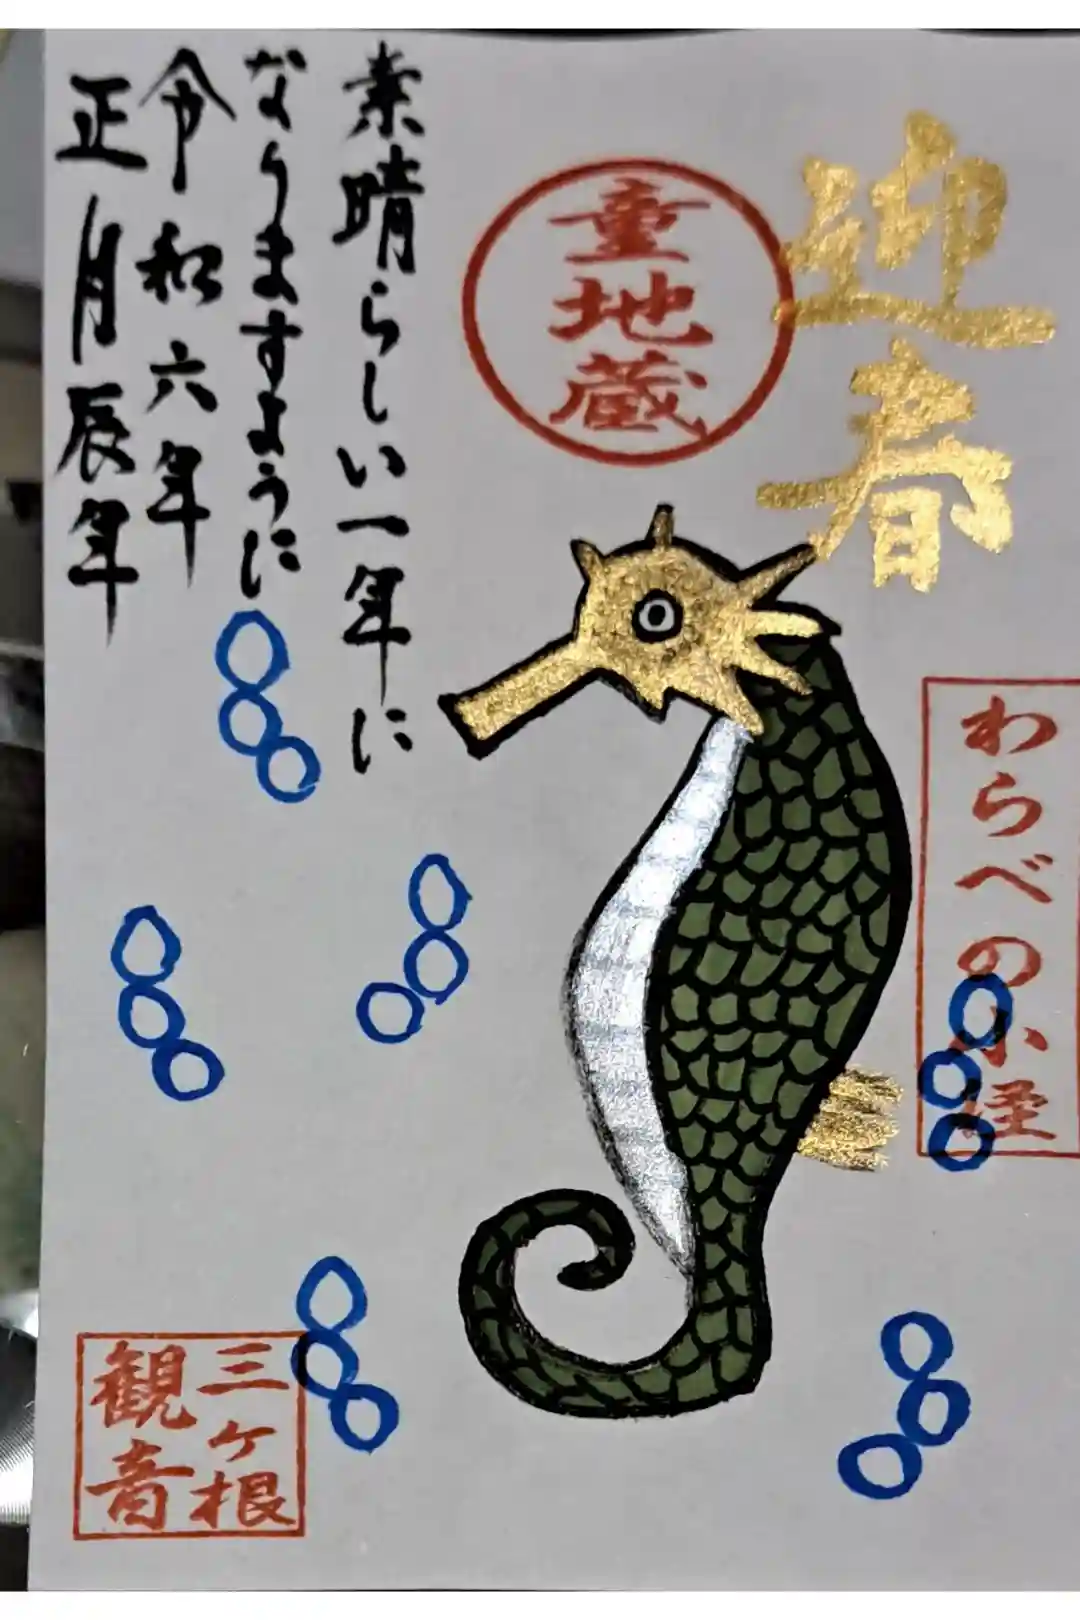 迎春
童地蔵
わらべの小径
素晴らしい一年に
なりますように
令和六年
正月辰年
三ヶ根
観音